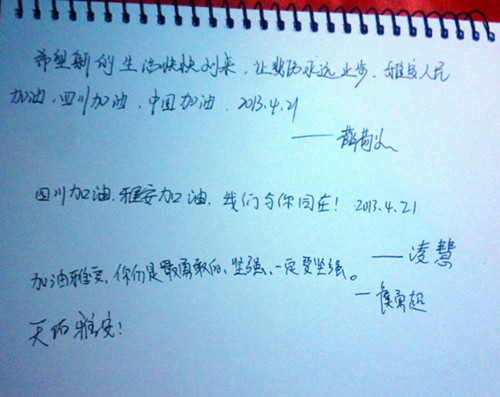 希望新的生活快快到来，让悲伤永远止步，雅安人民
加油，四川加油，中国加油，2013.4.21
四川加油，雅安加油，我们与你同在！ 2013.4.21
——凌慧
加油雅安，你们是最勇敢的，坚强，一定要坚强。
—侯勇超
天佑雅安！